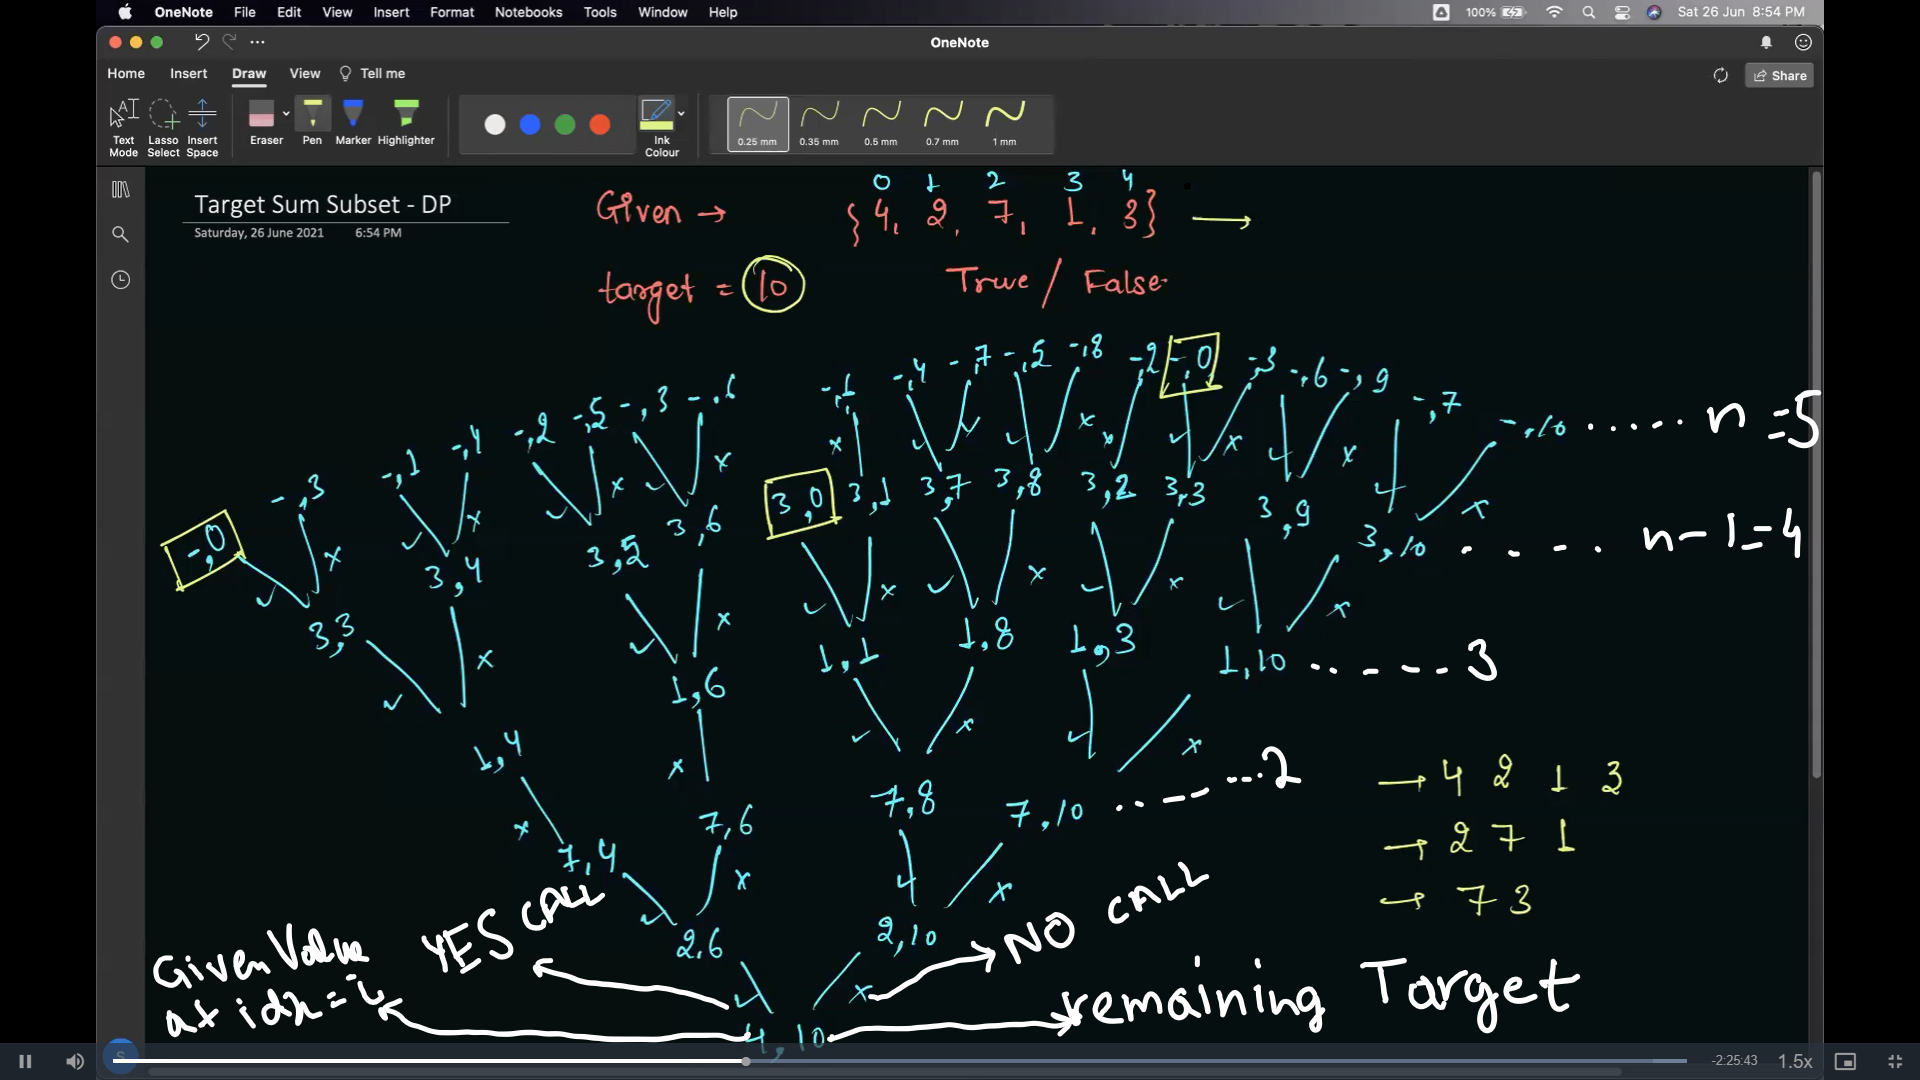 OneNote File Edit View Insert Format Notebooks Tools Window Help 100% Sat 26 Jun 8:54 PM
OneNote
Home Insert Draw View Tell me Share
Text Mode Lasso Select Insert Space Eraser Pen Marker Highlighter Ink Colour 0.25 mm 0.35 mm 0.5 mm 0.7 mm 1 mm
0 1 2 3 4
Target Sum Subset - DP
Given → {4, 2, 7, 1, 3} →
Saturday, 26 June 2021 6:54 PM
target = 10 True / False
-,4 -,7 -,5 -,8 -,2 -,0 -,3 -,6 -,9
-,2 -,5 -,3 -,6 -,1 -,7 -,10 ..... n=5
-,0 -,3 -,1 -,4
3,0 3,1 3,7 3,8 3,2 3,3 3,9 3,10 .... n-1=4
3,3 3,4 3,5 3,6
1,4 1,6 1,1 1,8 1,3 1,10 ..... 3
7,4 7,6 7,8 7,10 ..... 2
→ 4 2 1 3
→ 2 7 1
→ 7 3
2,6 2,10
YES CALL
NO CALL
Given Value
at idx = i
4,10
remaining Target
-2:25:43 1.5x